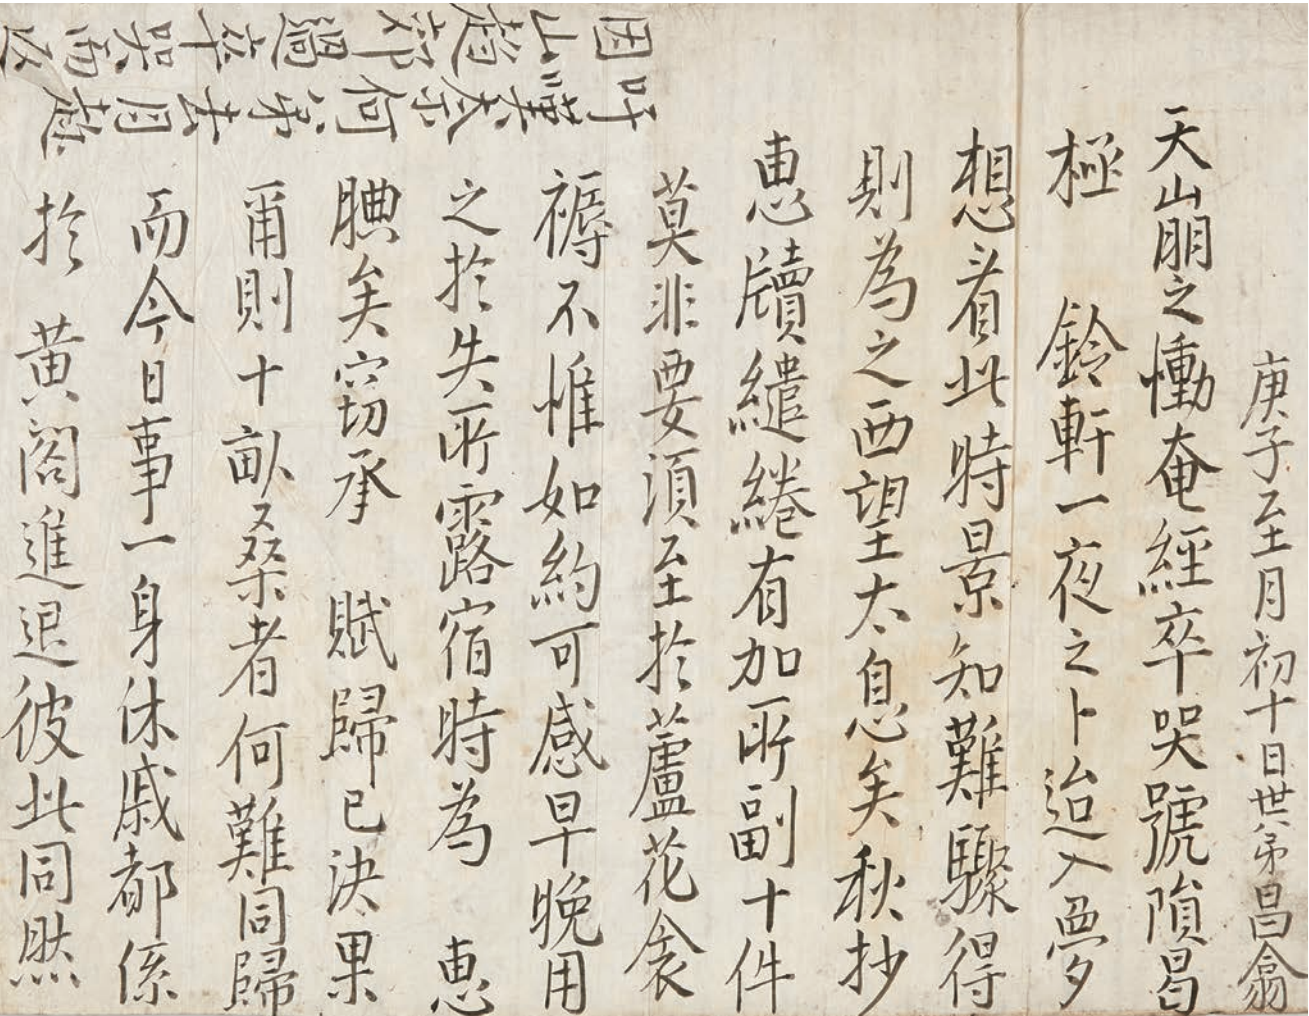 庚子至月初十日世弟昌翕
天山崩之慟奄經卒哭號隕曷
極 鈴軒一夜之卜迨入夢
想看此時景知難驟得
則為之西望太息矣秋抄
惠牘繾綣有加所副十件
莫非要須至於蘆花衾
褥不惟如約可感早晚用
之於失所露宿時為 惠
腆矣窃承 賦歸已決果
爾則十畝桑者何難同歸
而今日事一身休戚都係
於 黃閣進退彼此同然
吁嘆奈何弟去月趂
因山趍郊過卒哭而